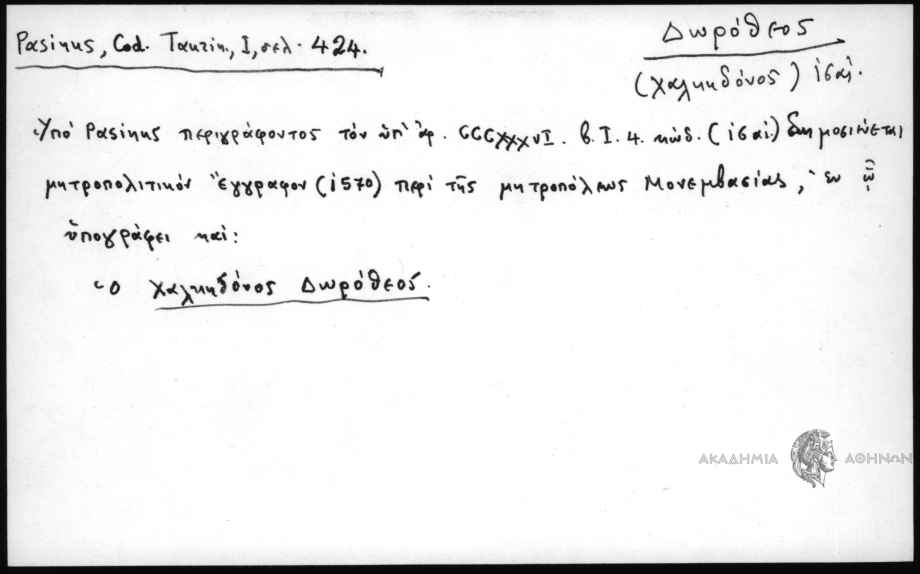 Pasinus, Cod. Taurin., I, σελ. 424.
Δωρόθεος
(Χαλκηδόνος) ις΄ αἰ.
Ὑπό Pasinus περιγράφοντος τόν ὑπ' ἀρ. CCCXXXVI. b. I. 4. κώδ. (ις΄ αἰ.) δημοσιεύεται
μητροπολιτικόν ἔγγραφον (1570) περί τῆς μητροπόλεως Μονεμβασίας, ἐν ᾧ
ὑπογράφει καί:
Ὁ Χαλκηδόνος Δωρόθεος.
ΑΚΑΔΗΜΙΑ ΑΘΗΝΩΝ